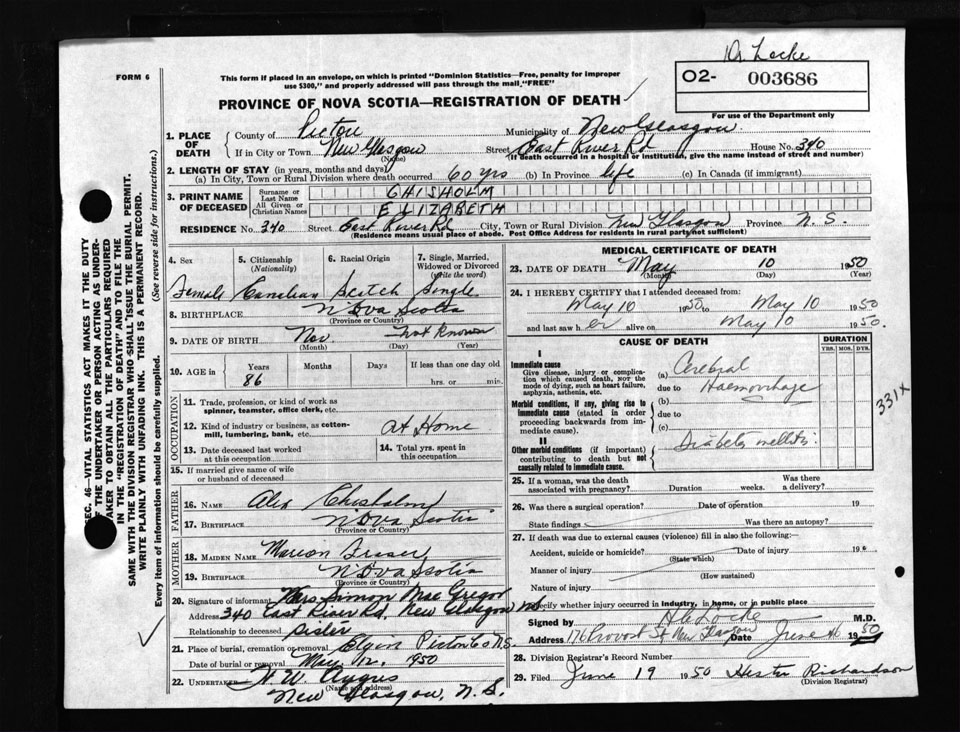 Dr Locke
FORM 6
This form if placed in an envelope, on which is printed "Dominion Statistics—Free, penalty for improper
use $300," and properly addressed will pass through the mail "FREE"
O2- 003686
For use of the Department only
PROVINCE OF NOVA SCOTIA—REGISTRATION OF DEATH
1. PLACE OF DEATH
County of Pictou Municipality of New Glasgow
If in City or Town New Glasgow (Name) Street East River Rd House No. 340
(If death occurred in a hospital or institution, give the name instead of street and number)
2. LENGTH OF STAY (in years, months and days)
(a) In City, Town or Rural Division where death occurred 60 yrs (b) In Province life (c) In Canada (if immigrant)
3. PRINT NAME OF DECEASED
Surname or Last Name CHISHOLM
All Given or Christian Names ELIZABETH
RESIDENCE No. 340 Street East River Rd City, Town or Rural Division New Glasgow Province N.S.
(Residence means usual place of abode. Post Office Address for residents in rural parts not sufficient)
4. Sex 5. Citizenship (Nationality) 6. Racial Origin 7. Single, Married, Widowed or Divorced (Write the word)
Female Canadian Scotch Single
8. BIRTHPLACE Nova Scotia
(Province or Country)
9. DATE OF BIRTH Nov Not Known
(Month) (Day) (Year)
10. AGE in Years Months Days If less than one day old
86 hrs. or min.
OCCUPATION
11. Trade, profession, or kind of work as
spinner, teamster, office clerk, etc.
12. Kind of industry or business, as cotton-
mill, lumbering, bank, etc. At Home
13. Date deceased last worked at this occupation 14. Total yrs. spent in this occupation
15. If married give name of wife
or husband of deceased
FATHER
16. NAME Alex Chisholm
17. BIRTHPLACE Nova Scotia
(Province or Country)
MOTHER
18. MAIDEN NAME Marion Fraser
19. BIRTHPLACE Nova Scotia
(Province or Country)
20. Signature of informant Mrs Simon Mac Gregor
Address 340 East River Rd. New Glasgow NS
Relationship to deceased Sister
21. Place of burial, cremation or removal Elgin Pictou Co N.S.
Date of burial or removal May 12, 1950
22. UNDERTAKER H.W. Angus
(Name and address)
New Glasgow, N.S.
MEDICAL CERTIFICATE OF DEATH
23. DATE OF DEATH May 10 1950
(Month) (Day) (Year)
24. I HEREBY CERTIFY that I attended deceased from:
May 10 1950 to May 10 1950
and last saw her alive on May 10 1950.
CAUSE OF DEATH DURATION
YRS. MOS. DYS.
I
Immediate cause
Give disease, injury or complica-
tion which caused death, not the
mode of dying, such as heart failure,
asphyxia, asthenia, etc.
(a) Cerebral
due to Haemorrhage
Morbid conditions, if any, giving rise to
immediate cause (stated in order
proceeding backwards from im-
mediate cause).
(b)
due to
(c)
331X
II
Other morbid conditions (if important)
contributing to death but not
causally related to immediate cause.
Diabetes mellitus
25. If a woman, was the death
associated with pregnancy? Duration weeks. Was there a delivery?
26. Was there a surgical operation? Date of operation 19
State findings Was there an autopsy?
27. If death was due to external causes (violence) fill in also the following:—
Accident, suicide or homicide? (State which) Date of injury 19
Manner of injury (How sustained)
Nature of injury
Specify whether injury occurred in industry, in home, or in public place
Signed by Locke M.D.
Address 176 Provost St New Glasgow Date June 1950
28. Division Registrar's Record Number
29. Filed June 19 1950 Hester Richardson
(Division Registrar)
SEC. 46—VITAL STATISTICS ACT MAKES IT THE DUTY
OF THE UNDERTAKER OR PERSON ACTING AS UNDER-
TAKER TO OBTAIN ALL THE PARTICULARS REQUIRED
IN THE "REGISTRATION OF DEATH" AND TO FILE THE
SAME WITH THE DIVISION REGISTRAR WHO SHALL ISSUE THE BURIAL PERMIT.
WRITE PLAINLY WITH UNFADING INK. THIS IS A PERMANENT RECORD.
Every item of information should be carefully supplied. (See reverse side for instructions.)